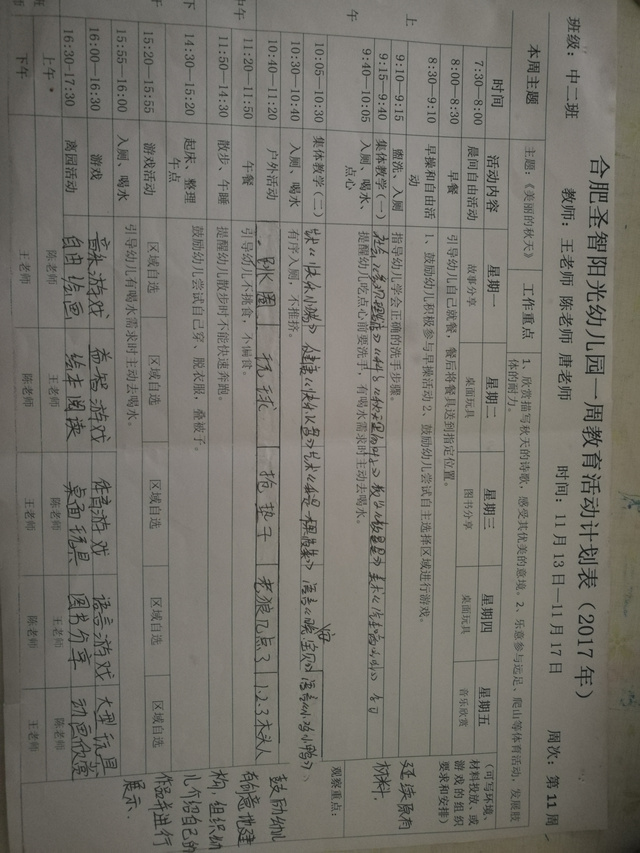 合肥圣智阳光幼儿园一周教育活动计划表（2017 年）
班级：中二班 教师：王老师 陈老师 唐老师 时间：11月13日—11月17 周次：第 11 周
本周主题 主题：《美丽的秋天》 工作重点 1、欣赏描写秋天的诗歌，感受其优美的意境。2、乐意参与远足、爬山等体育活动，发展肢体的耐力。
时间 活动内容 星期一 星期二 星期三 星期四 星期五 （可写环境、材料投放、或游戏的组织要求和安排）
7:30—8:00 晨间自由活动 故事分享 桌面玩具 图书分享 桌面玩具 音乐欣赏
8:00—8:30 早餐 引导幼儿自己就餐，餐后将餐具送到指定位置。
8:30—9:10 早操和自由活动 1、鼓励幼儿积极参与早操活动 2、鼓励幼儿尝试自主选择区域进行游戏。
上午
9:10—9:15 盥洗、入厕 指导幼儿学会正确的洗手步骤。
9:15—9:40 集体教学（一）
9:40—10:05 入厕、喝水、点心 提醒幼儿吃点心前要洗手，有喝水需求时主动去喝水。
延续原有材料.
10:05—10:30 集体教学（二）
10:30—10:40 入厕、喝水 有序入厕，不推挤。
观察重点：
10:40—11:20 户外活动 跳圈 玩球 抢垫子 老狼几点了 1.2.3木头人
中午
11:20—11:50 午餐 引导幼儿不挑食，不偏食。
11:50—14:30 散步、午睡 提醒幼儿散步时不能快速奔跑。
14:30—15:20 起床、整理午点 鼓励幼儿尝试自己穿、脱衣服，叠被子。
鼓励幼儿有创意地建构，组织幼儿介绍自己的作品并进行展示.
15:20—15:55 游戏活动 区域自选 区域自选 区域自选 区域自选 区域自选
15:55—16:00 入厕、喝水 引导幼儿有喝水需求时主动去喝水。
16:00—16:30 游戏 音乐游戏 益智游戏 体育游戏 语言游戏 大型玩具
16:30—17:30 离园活动 自由绘画 绘本阅读 桌面玩具 图书分享 动画欣赏
上午 陈老师 王老师 陈老师 王老师 陈老师
下午 王老师 陈老师 王老师 陈老师 王老师